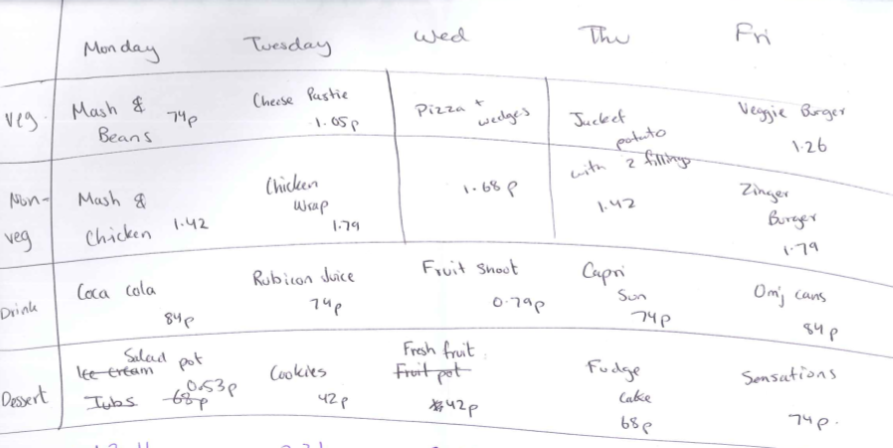 Monday Tuesday Wed Thu Fri
Veg. Mash & Beans 74p Cheese Pastie 1.05p Pizza + wedges Jacket potato with 2 fillings Veggie Burger 1.26
Non-veg Mash & Chicken 1.42 Chicken Wrap 1.79 1.68p 1.42 Zinger Burger 1.79
Drink Coca cola 84p Rubicon Juice 74p Fruit shoot 0.79p Capri Sun 74p Omj cans 84p
Dessert Salad pot Ice cream Tubs 68p 0.53p Cookies 42p Fresh fruit Fruit pot 42p Fudge cake 68p Sensations 74p.